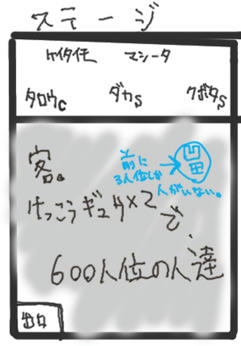 ステージ
ケイタイモ マシータ
タロウc ダカs クボタs
客。
前に3人位しか人がいない。
けっこうギュウ×2で、
600人位の人達
出口